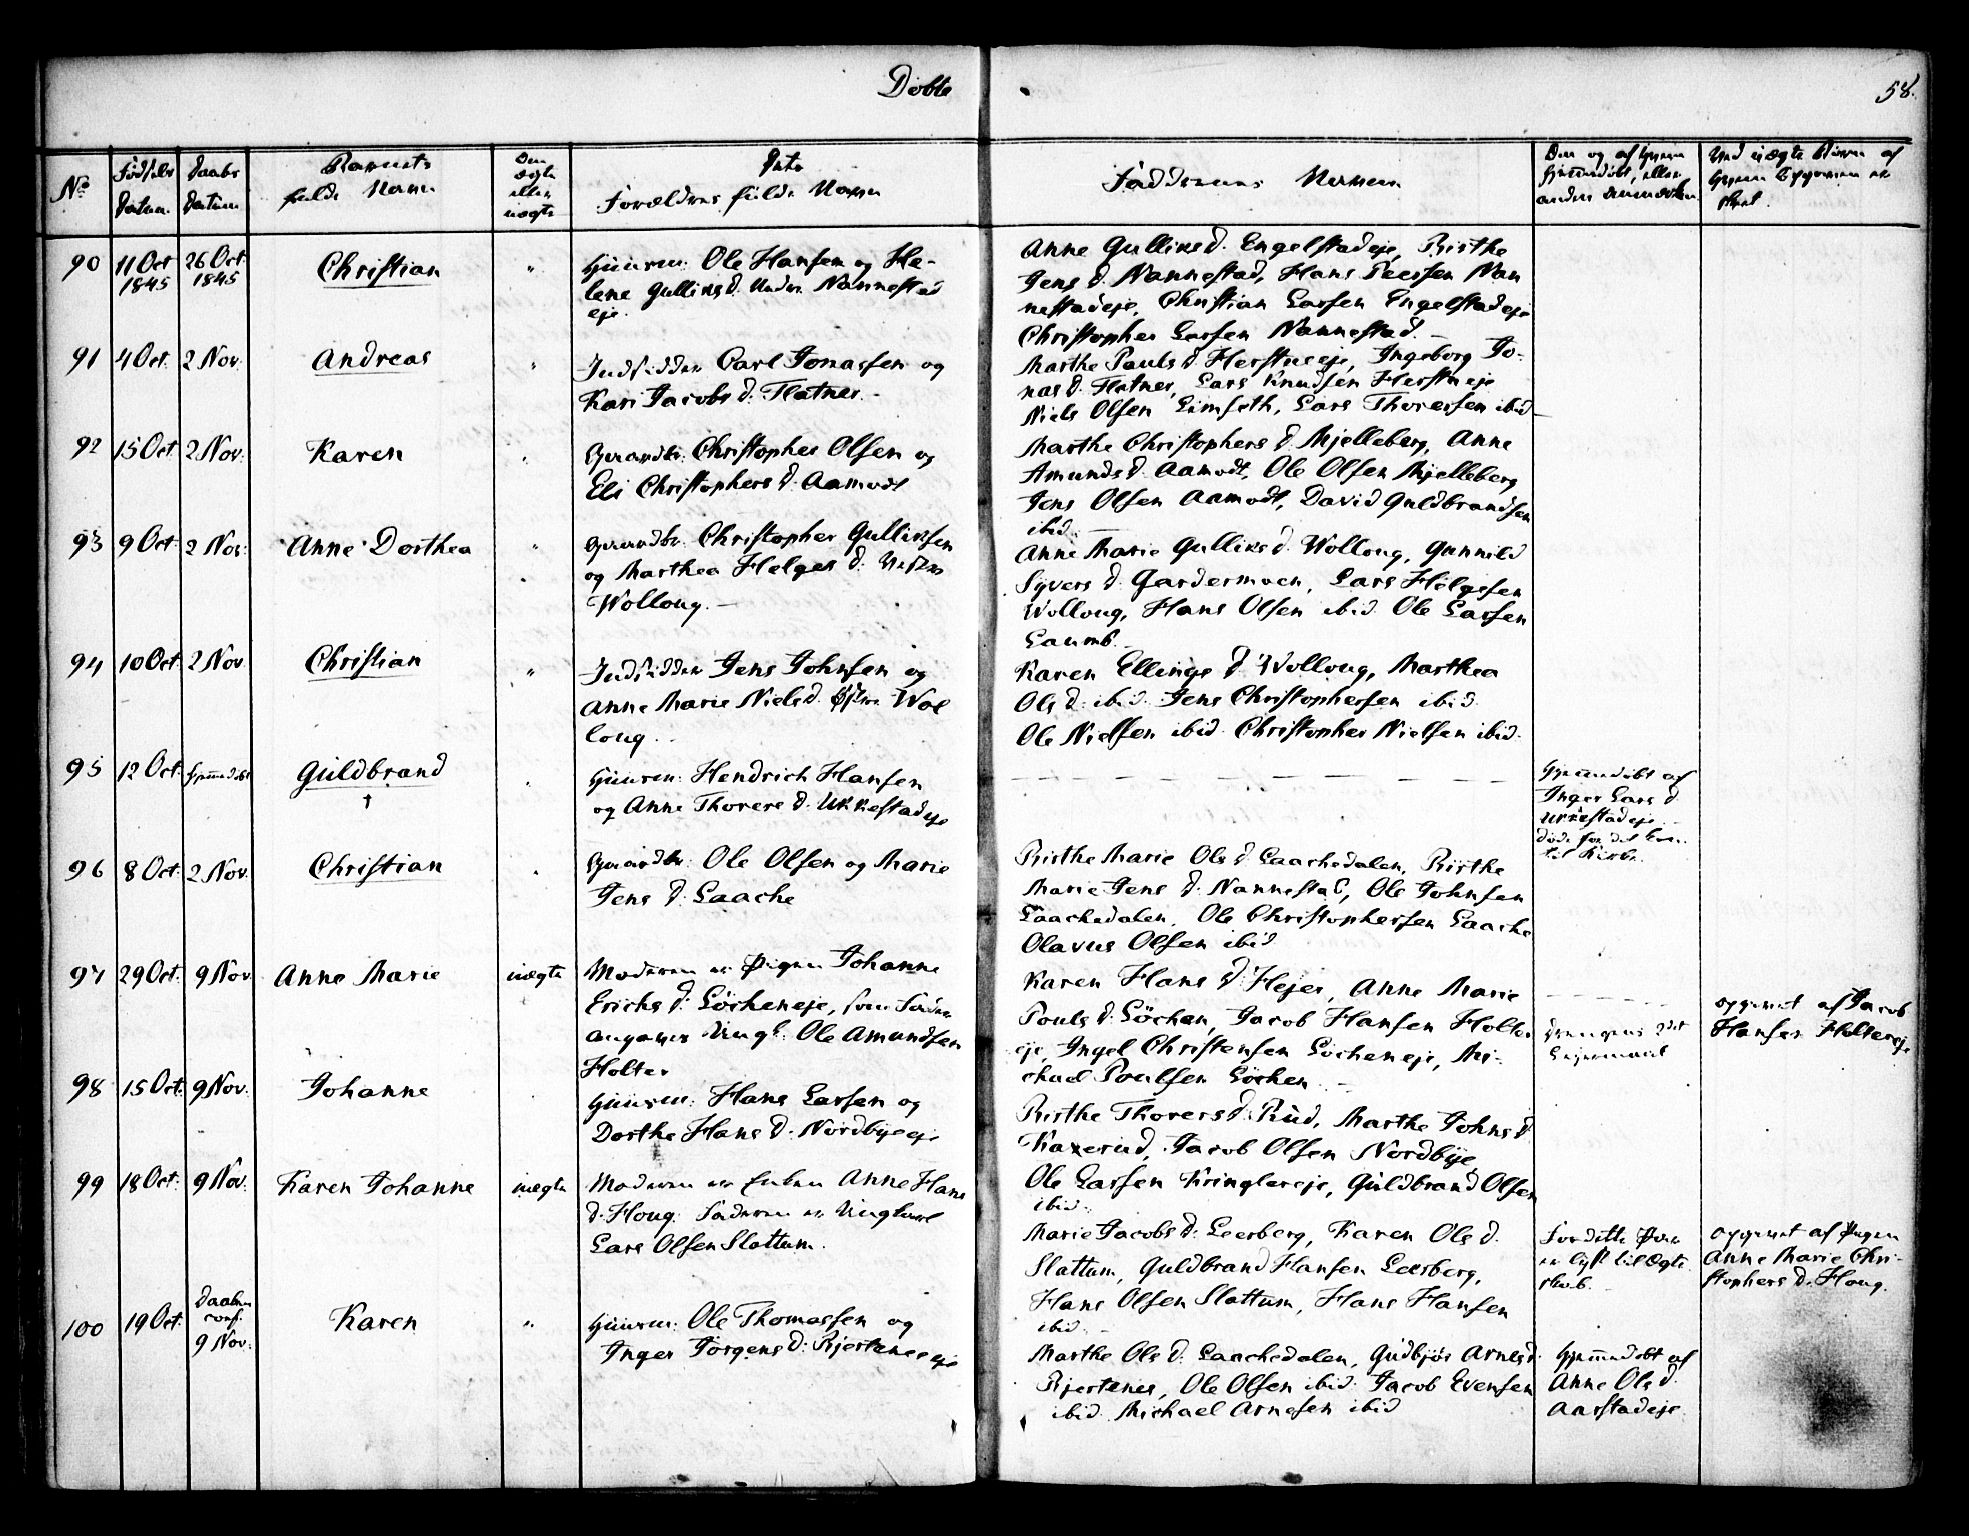 Døbte
58.
No
Fødsels Datum
Daabs Datum
Barnets fulde Navn
Om ægte eller uægte
Forældres fulde Navn
Faddernes Navnen
90 11 Oct 1845 26 Oct 1845 Christian "
Huusm: Ole Hansen og He-
lene Gulliksd. Nedre Nannestad
eje.
Anne Gulliksd. Engelstadeje, Birthe
Jens d. Nannestad, Hans Peersen Nan
nestadeje, Christian Larsen Engelstadeje
Christopher Larsen Nannestad. —
91 4 Oct. 2 Nov: Andreas "
Indsidder Carl Jonassen og
Kari Jacobs d: Flatner. -
Marthe Pauls d. Herstueeje, Ingeborg Jo-
nas d. Flatner, Lars Knudsen Herstueeje
Niels Olsen Limseth, Lars Thoresen ibid —
92 15 Oct. 2 Nov: Karen "
Gaardbr: Christopher Olsen og
Eli Christophers d: Aamodt
Marthe Christophers d. Mjelleberg, Anne
Amunds d. Aamodt, Ole Olsen Mjelleberg
Jens Olsen Aamodt, David Guldbrandsen
ibid. —
93 9 Oct: 2 Nov: Anne Dorthea "
Gaardbr: Christopher Gulliksen
og Marthea Helges d: Vestre
Wolloug. —
Anne Marie Gulliks d. Wolloug, Gunnild
Syvers d. Gardermoen, Lars Helgesen
Wolloug, Hans Olsen ibid. Ole Larsen
Laumb. —
94 10 Oct: 2 Nov. Christian "
Indsidder Jens Johnsen og
Anne Marie Nielsd. Østre Wol
loug. .
Karen Ellings d. Wolloug, Marthea
Ols d: ibid. Jens Christophersen ibid.
Ole Nielsen ibid. Christopher Nielsen ibid.
95 12 Oct. hjemmedøbt Guldbrand "
†
Huusm: Hendrich Hansen
og Anne Thorers d. Ukkestadeje
— — — — — —
Hjemmedøbt af
Inger Lars d.
Ukkestadeje. —
døde før det kom
til Kirke.
96 8 Oct. 2 Nov. Christian "
Gaardbr: Ole Olsen og Marie
Jens d: Laache
Birthe Marie Ols d. Laachedalen, Birthe
Marie Jens d. Nannestad, Ole Johnsen
Laachedalen, Ole Christophersen Laache
Olavus Olsen ibid
97 29 Oct. 9 Nov Anne Marie uægte
Moderen er Pigen Johanne
Erichs d: Löcheneje, som Fader
angaves Ungk: Ole Amundsen
Holter
Karen Hans d: Hejer, Anne Marie
Pouls d. Löchen, Jacob Hansen Holter
eje, Ingel Christensen Löcheneje, Mi-
chael Poulsen Löchen. —
2det
Lejermaal
opgivet af Jacob
Hansen Holtereje
98 15 Oct. 9 Nov. Johanne
Huusm: Hans Larsen og
Dorthe Hans d: Nordbyeeje
Birthe Thorers d: Rud, Marthe Johns d.
Kaxerud, Jacob Olsen Nordbye
Ole Larsen Kringlereje, Guldbrand Olsen
ibid.
99 18 Oct: 9 Nov. Karen Johanne uægte
Moderen er Enken Anne Hans
d. Houg. Faderen er Ungkarl
Lars Olsen Slattum.
Marie Jacobs d: Leesberg, Karen Ols d.
Slattum, Guldbrand Hansen Leesberg,
Hans Olsen Slattum, Hans Hansen
ibid. —
For dette Par
er lyst til Ægte
skab.
opgivet af Pigen
Anne Marie Chri-
stophers d. Houg.
100 19 Oct. Daaben conf. 9 Nov. Karen "
Huusm: Ole Thomassen og
Inger Jörgens d: Bjerkeneseje
Marthe Ols d: Laachedalen, Gudbjør Arnesd:
Bjerkenes, Ole Olsen ibid. Jacob Evensen
ibid. Michael Arnesen ibid
Hjemmedøbt af
Anne Ols d.
Aarstadeje